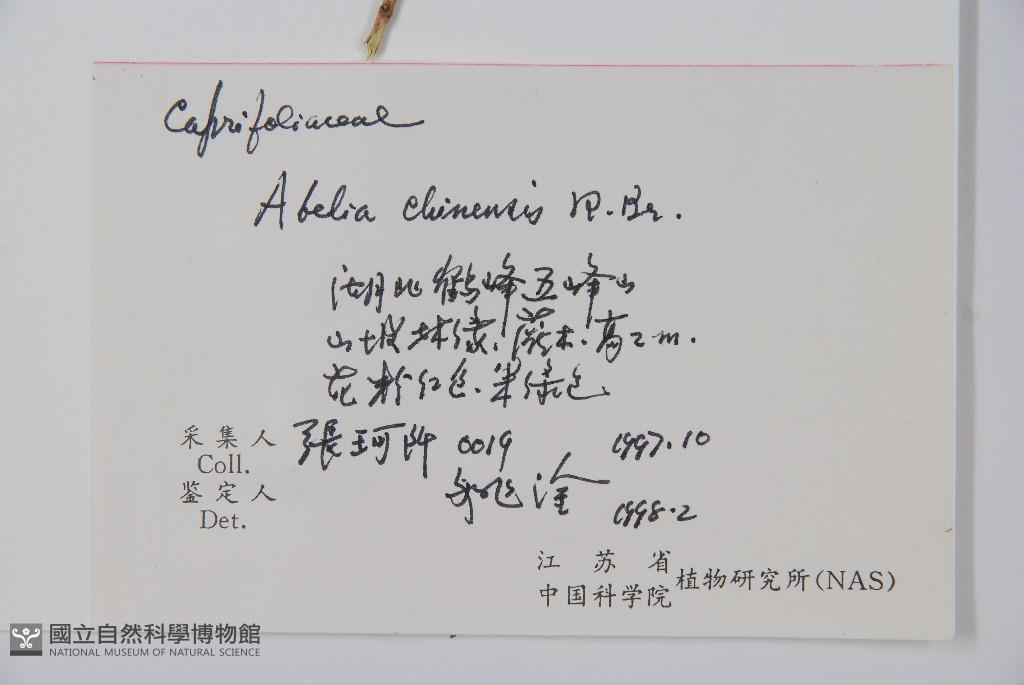 Caprifoliaceae
Abelia chinensis R. Br.
湖北鹤峰五峰山
山坡林缘、灌木、高2m.
花粉红色、果绿色
采集人 張珂 0019 1997.10
Coll.
鉴定人
Det. 1998.2
江苏省
中国科学院 植物研究所(NAS)
國立自然科學博物館
NATIONAL MUSEUM OF NATURAL SCIENCE